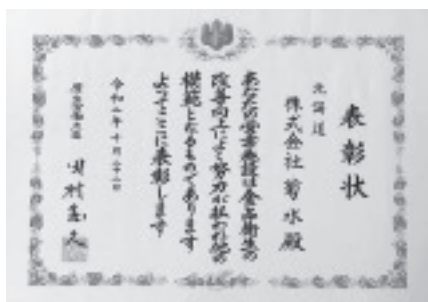 表彰状
北海道
株式会社 菊水殿
あなたの営業施設は食品衛生の
改善向上によく努力が払われ他の
模範となるものであります
よってここに表彰します
令和二年十月二十二日
厚生労働大臣 田村憲久